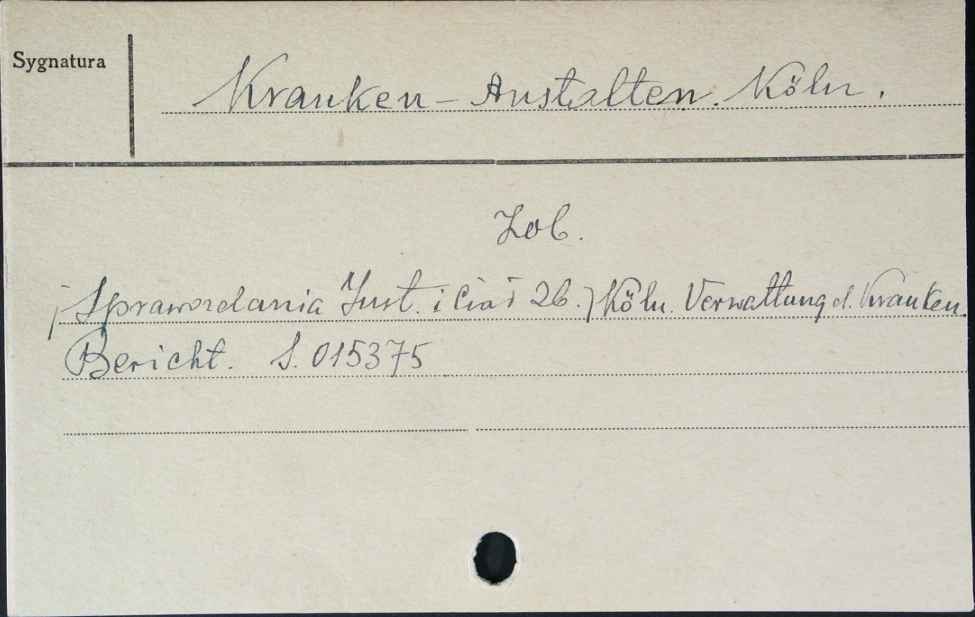 Sygnatura
Kranken-Anstalten. Köln.
Zob.
/Sprawozdania Inst. i Ciał 26./ Köln. Verwaltung d. Kranken.
Bericht. S. 015375